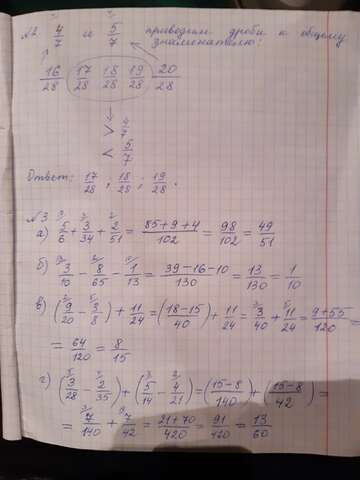 N2 4/7 и 5/7 приводим дроби к общему
знаменателю:
16/28 17/28 18/28 19/28 20/28
> 4/7
< 5/7
Ответ: 17/28; 18/28; 19/28.
N3
а) 5/6 + 3/34 + 2/51 = (85+9+4)/102 = 98/102 = 49/51
б) 3/10 - 8/65 - 1/13 = (39-16-10)/130 = 13/130 = 1/10
в) (9/20 - 3/8) + 11/24 = ((18-15)/40) + 11/24 = 3/40 + 11/24 = (9+55)/120 =
= 64/120 = 8/15
г) (3/28 - 2/35) + (5/14 - 4/21) = ((15-8)/140) + ((15-8)/42) =
= 7/140 + 7/42 = (21+70)/420 = 91/420 = 13/60